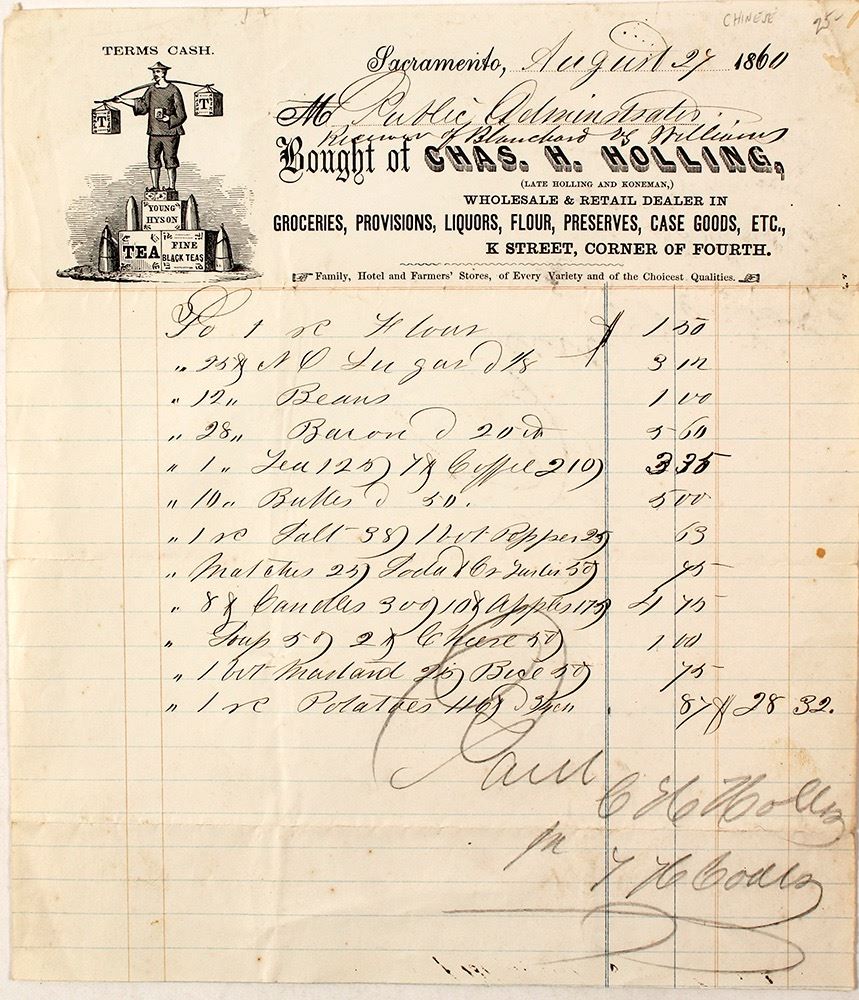 CHINESE 25-
TERMS CASH.
Sacramento, August 27 1860
M Public Administrator
Receiver of Blanchard vs Williams
Bought of CHAS. H. HOLLING,
(LATE HOLLING AND KONEMAN,)
WHOLESALE & RETAIL DEALER IN
GROCERIES, PROVISIONS, LIQUORS, FLOUR, PRESERVES, CASE GOODS, ETC.,
K STREET, CORNER OF FOURTH.
Family, Hotel and Farmers' Stores, of Every Variety and of the Choicest Qualities.
T T
YOUNG HYSON
TEA FINE BLACK TEAS
To 1 sc Flour $ 1 50
" 25 # N O Sugar @ 12½ 3 12
" 12 " Beans 1 00
" 28 " Bacon @ 20 5 60
" 1 " Tea 125) 7# Coffee 210) 3 35
" 10 " Butter @ 50. 5 00
" 1 sc Salt 38) 1 bot Pepper 25) 63
" Matches 25) Soda & Cr Tartar 50) 75
" 8 # Candles 300) 10# Apples 175) 4 75
" Soap 50) 2 # Cheese 50) 1 00
" 1 bot Mustard 25) Rice 50) 75
" 1 sc Potatoes 87 $ 28 32.
Paid
C H Holling